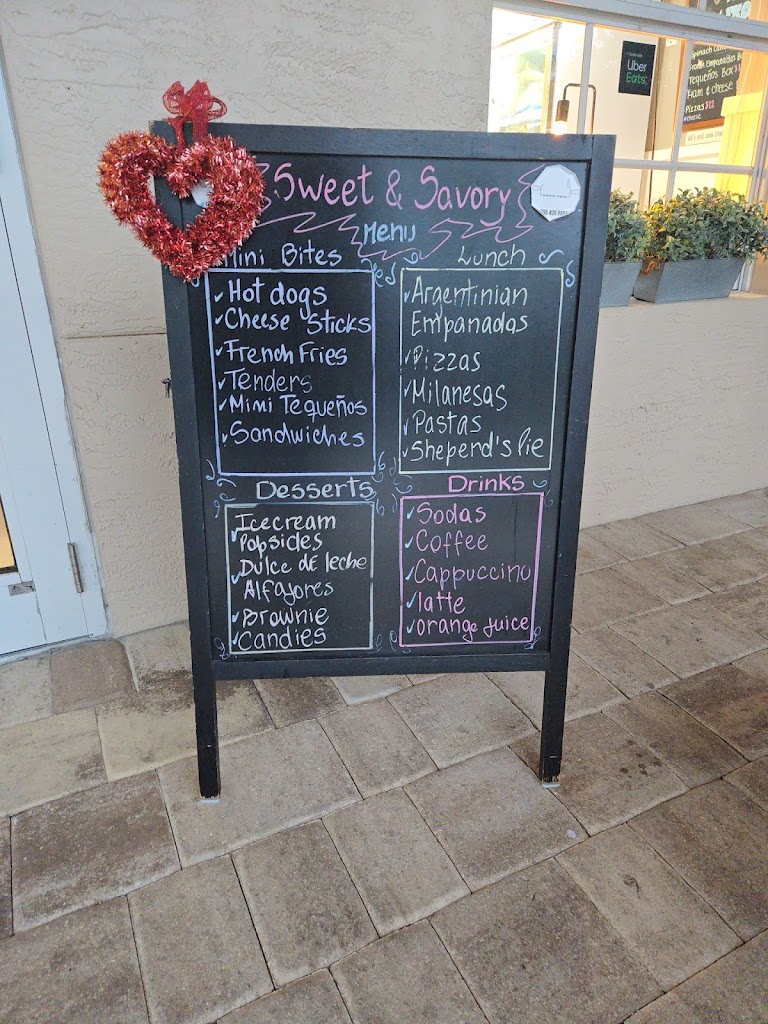 Sweet & Savory
Menu
Mini Bites
Hot dogs
Cheese Sticks
French Fries
Tenders
Mimi Tequeños
Sandwiches
Lunch
Argentinian
Empanadas
Pizzas
Milanesas
Pastas
Sheperd's Pie
Desserts
Icecream
Popsicles
Dulce de leche
Alfajores
Brownie
Candies
Drinks
Sodas
Coffee
Cappuccino
latte
orange Juice
Uber
Eats
Spinach
Empanadas
Tequeños Box
Ham & cheese
Pizzas